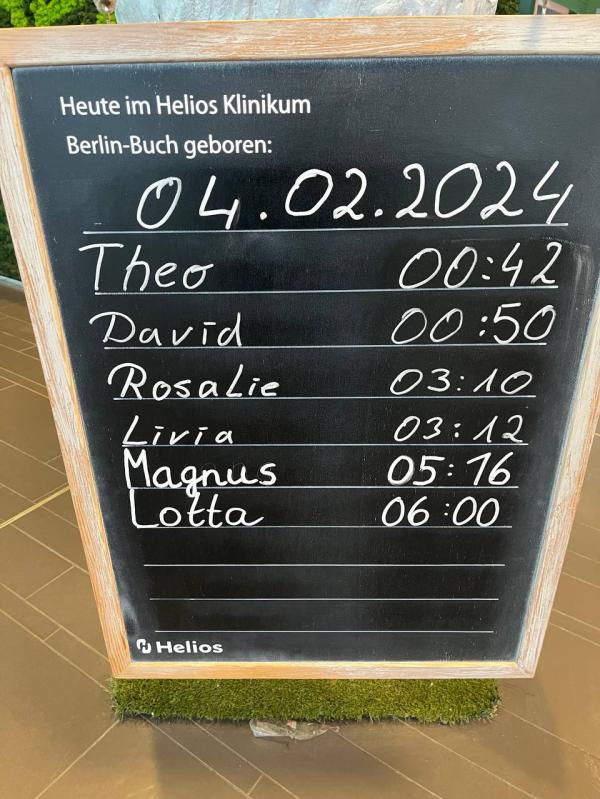 Heute im Helios Klinikum
Berlin-Buch geboren:
04.02.2024
Theo 00:42
David 00:50
Rosalie 03:10
Livia 03:12
Magnus 05:16
Lotta 06:00
Helios